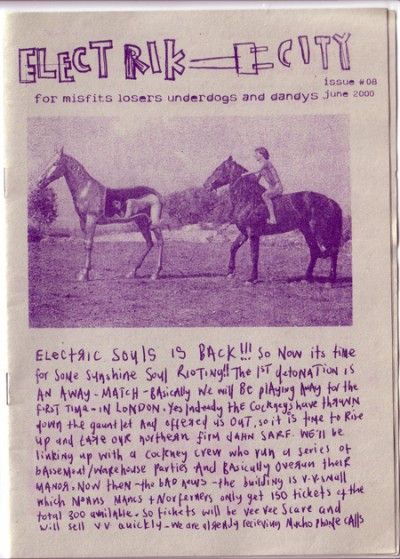 ELECTRIK CITY
issue #08
for misfits losers underdogs and dandys june 2000
Electric Souls is BACK!!! So now its time
for some sunshine Soul RIOTing!! The 1st detonation is
AN AWAY-MATCH-BAsically we will BE PlAying AwAy for the
FIRST Time-IN LONDON. Yes Indeedy the Cockneys have thrown
down the gauntlet And offered us OUT, so it is time to Rise
up and take our northern firm dahn SARF. We'll be
linking up with a cockney crew who run a series of
basement/warehouse parties And basically overun their
MANOR. Now then-the BAD news-the building is v.v.small
which means Mancs + Norferners only get 150 tickets of the
total 300 available. So tickets will be vee vee scarce and
will sell v.v quickly-we are already recieving Mucho phone calls